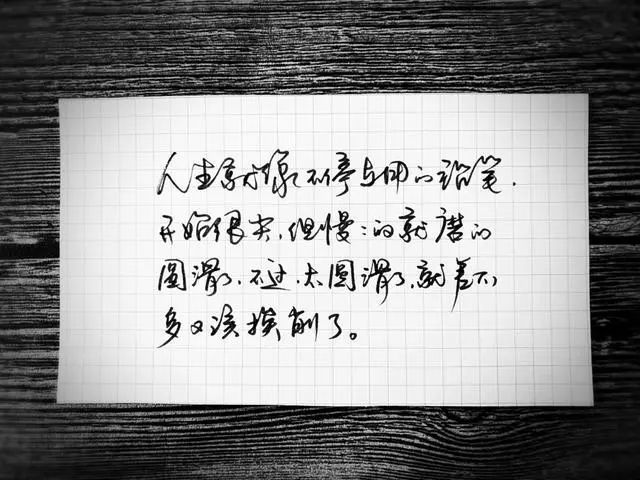 人生就像不停在用的铅笔，
开始很尖，但慢：的就磨的
圆滑了，不过，太圆滑了，就差不
多又该挨削了。